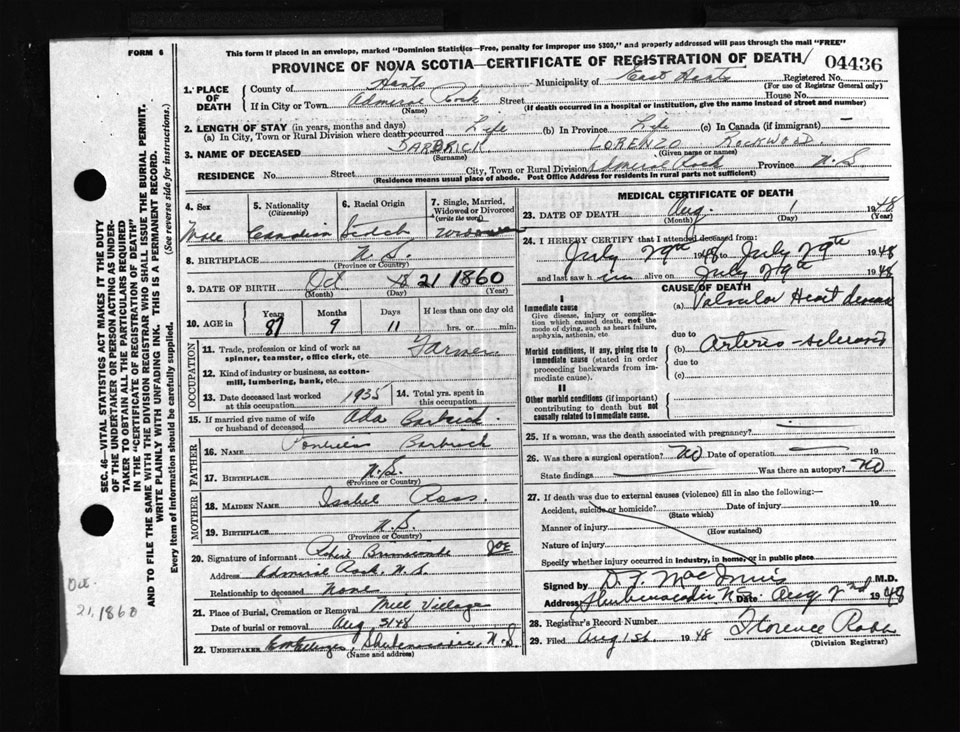 FORM 6
This form if placed in an envelope, marked "Dominion Statistics—Free, penalty for improper use $300," and properly addressed will pass through the mail "FREE"
PROVINCE OF NOVA SCOTIA—CERTIFICATE OF REGISTRATION OF DEATH/ 04436
1. PLACE OF DEATH County of Hants Municipality of East Hants Registered No.
(For use of Registrar General only)
If in City or Town Admiral Rock Street House No.
(Name) (If death occurred in a hospital or institution, give the name instead of street and number)
2. LENGTH OF STAY (in years, months and days)
(a) In City, Town or Rural Division where death occurred Life (b) In Province Life (c) In Canada (if immigrant) —
3. NAME OF DECEASED BARBRICK LORENZO ROCKWOOD
(Surname) (Given name or names)
RESIDENCE No. Street City, Town or Rural Division Admiral Rock Province N.S
(Residence means usual place of abode. Post Office Address for residents in rural parts not sufficient)
4. Sex Male
5. Nationality (Citizenship) Canadian
6. Racial Origin Scotch
7. Single, Married, Widowed or Divorced (write the word)
8. BIRTHPLACE N.S.
(Province or Country)
9. DATE OF BIRTH Oct 21 1860
(Month) (Day) (Year)
10. AGE in Years 87 Months 9 Days 11 If less than one day old hrs. or min.
OCCUPATION
11. Trade, profession or kind of work as spinner, teamster, office clerk, etc. Farmer
12. Kind of industry or business, as cotton-mill, lumbering, bank, etc.
13. Date deceased last worked at this occupation 1935
14. Total yrs. spent in this occupation
15. If married give name of wife or husband of deceased Ada
FATHER
16. NAME Barbrick
17. BIRTHPLACE N.S.
(Province or Country)
MOTHER
18. MAIDEN NAME Isabel Ross
19. BIRTHPLACE N.S.
(Province or Country)
20. Signature of informant Robert JOE
Address Admiral Rock, N.S.
Relationship to deceased None
21. Place of Burial, Cremation or Removal Mill Village
Date of burial or removal Aug 3/48
22. UNDERTAKER Shubenacadie, N.S
(Name and address)
MEDICAL CERTIFICATE OF DEATH
23. DATE OF DEATH Aug 1 1948
(Month) (Day) (Year)
24. I HEREBY CERTIFY that I attended deceased from:
July 29th 1948 to July 29th 1948
and last saw h im alive on July 29th 1948
CAUSE OF DEATH
I
Immediate cause (a) Valvular Heart disease
Give disease, injury or complication which caused death, not the mode of dying, such as heart failure, asphyxia, asthenia, etc.
due to
Morbid conditions, if any, giving rise to immediate cause (stated in order proceeding backwards from immediate cause). (b) Arterio-sclerosis
due to
(c)
II
Other morbid conditions (if important) contributing to death but not causally related to immediate cause.
25. If a woman, was the death associated with pregnancy?
26. Was there a surgical operation? NO Date of operation
State findings Was there an autopsy? NO
27. If death was due to external causes (violence) fill in also the following:—
Accident, suicide or homicide? Date of injury 19
(State which)
Manner of injury
(How sustained)
Nature of injury
Specify whether injury occurred in industry, in home, or in public place
Signed by D. F. MacInnis M.D.
Address Shubenacadie N.S. Date Aug 2nd 1948
28. Registrar's Record Number
29. Filed Aug 1st 1948 Florence Robb
(Division Registrar)
SEC. 46—VITAL STATISTICS ACT MAKES IT THE DUTY
OF THE UNDERTAKER OR PERSON ACTING AS UNDER-
TAKER TO OBTAIN ALL THE PARTICULARS REQUIRED
IN THE "CERTIFICATE OF REGISTRATION OF DEATH"
AND TO FILE THE SAME WITH THE DIVISION REGISTRAR WHO SHALL ISSUE THE BURIAL PERMIT.
WRITE PLAINLY WITH UNFADING INK. THIS IS A PERMANENT RECORD.
Every item of information should be carefully supplied. (See reverse side for instructions.)
Oct.
21, 1860